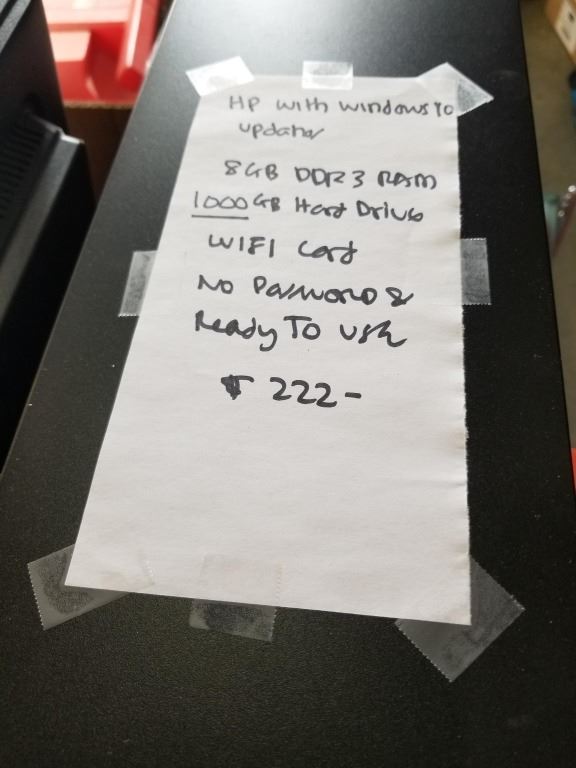 HP with windows 10
updates
8GB DDR3 RAM
1000 GB Hard Drive
WIFI Card
No Password &
Ready To Use
$ 222-